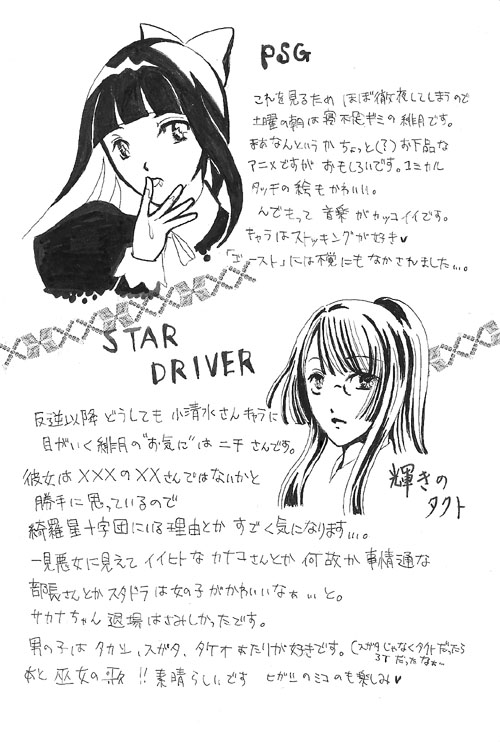 PSG
これを見るため ほぼ徹夜してしまうので
土曜の朝は寝不足ギミの緋月です。
まぁなんというか ちょっと(?)お下品な
アニメですが おもしろいです。コミカル
タッチの絵もかわいい。
んでもって 音楽がカッコイイです。
キャラはストッキングが好き♥
「ゴースト」には不覚にもなかされました...。
STAR
DRIVER
反逆以降 どうしても 小清水さんキャラに
目がいく緋月の"お気に"は ニチさんです。
彼女は×××の××さんではないかと
勝手に思っているので
綺羅星十字団にいる理由とか すごく気になります...。
一見悪女に見えて イイヒトな カナコさんとか 何故か事情通な
部長さんとか スタドラは女の子がかわいいなぁぃぃと。
サカナちゃん 退場はさみしかったです。
男の子は タカシ、スガタ、タケオ あたりが好きです。(スガタじゃなくタクトだったら
3Tだったなぁ〜
あと 巫女の歌!! 素晴らしいです ヒガシのミコのも楽しみ♥
輝きの
タクト